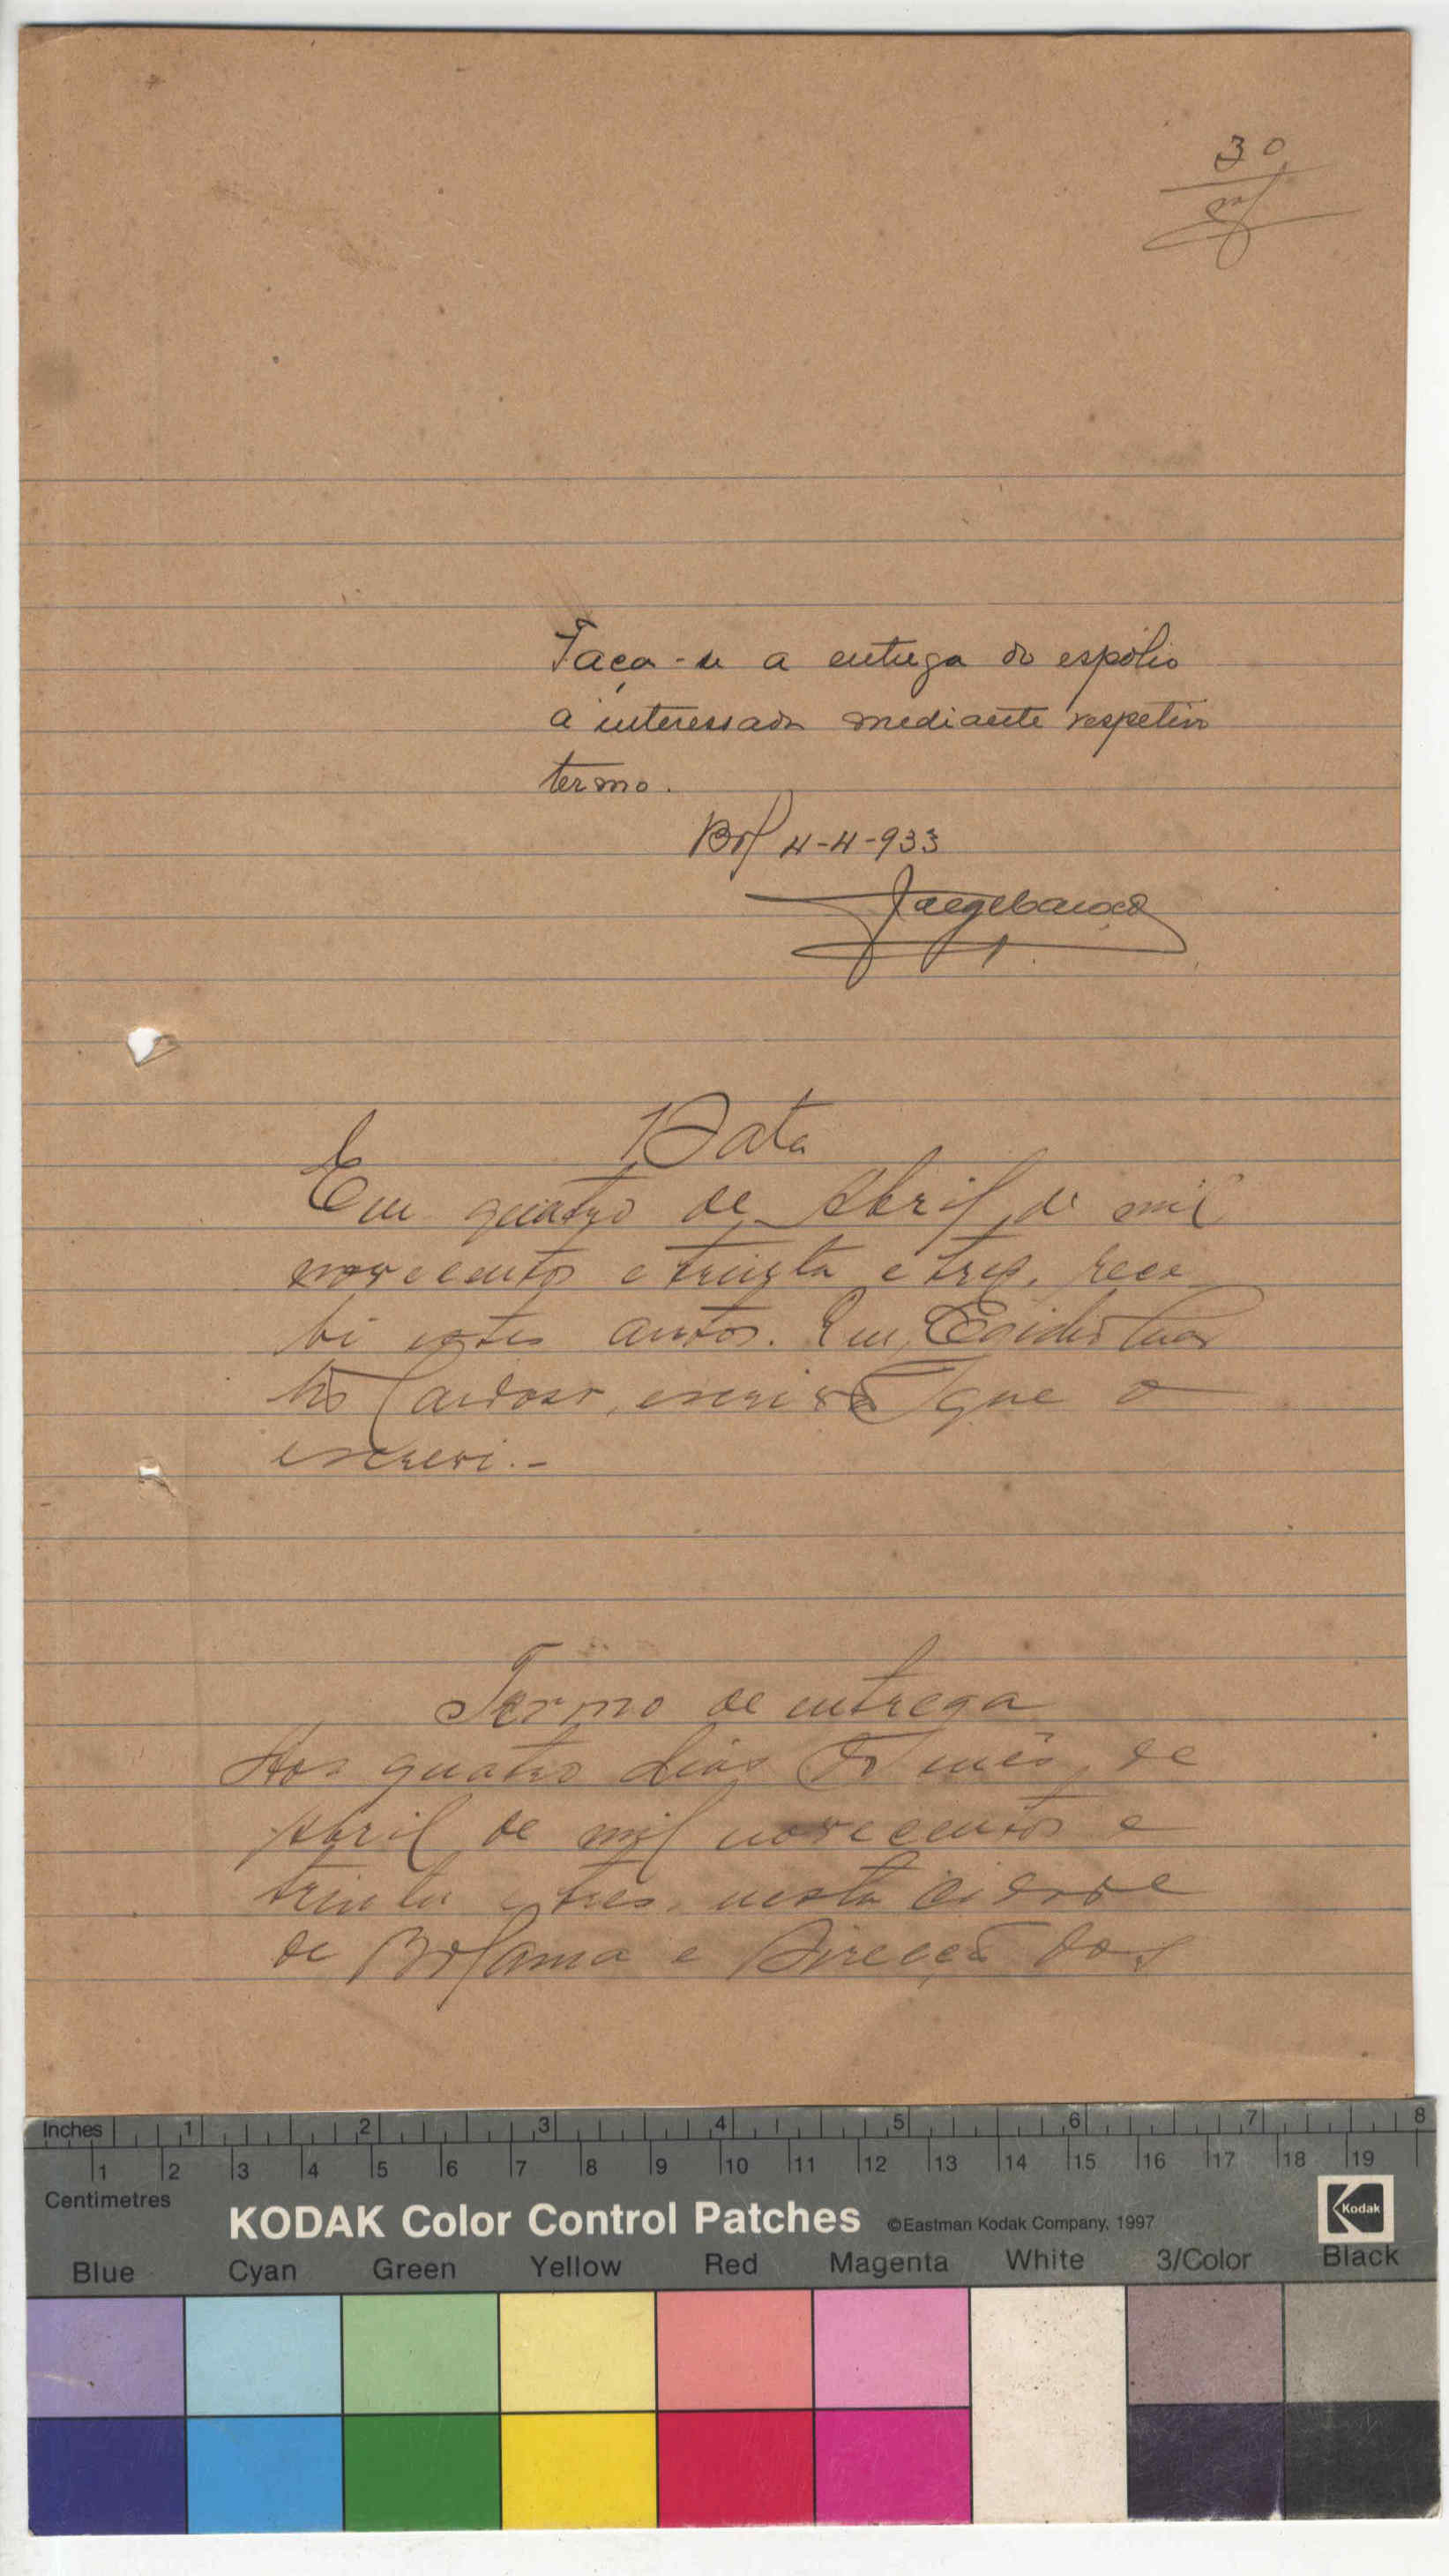 30
Faça-se a entrega do espólio
á interessada mediante respetivo
termo.
Bol 4-4-933
Data
Em quatro de Abril de mil
novecentos e trinta e tres, rece
bi estes autos. Eu, Egidio
Cardoso, escrivão que o
escrevi.-
Termo de entrega
Aos quatro dias do mês de
Abril de mil novecentos e
trinta e tres, nesta cidade
de Bolama e Direcção dos
Inches 1 2 3 4 5 6 7 8
1 2 3 4 5 6 7 8 9 10 11 12 13 14 15 16 17 18 19
Centimetres
KODAK Color Control Patches ©Eastman Kodak Company, 1997 Kodak
Blue Cyan Green Yellow Red Magenta White 3/Color Black